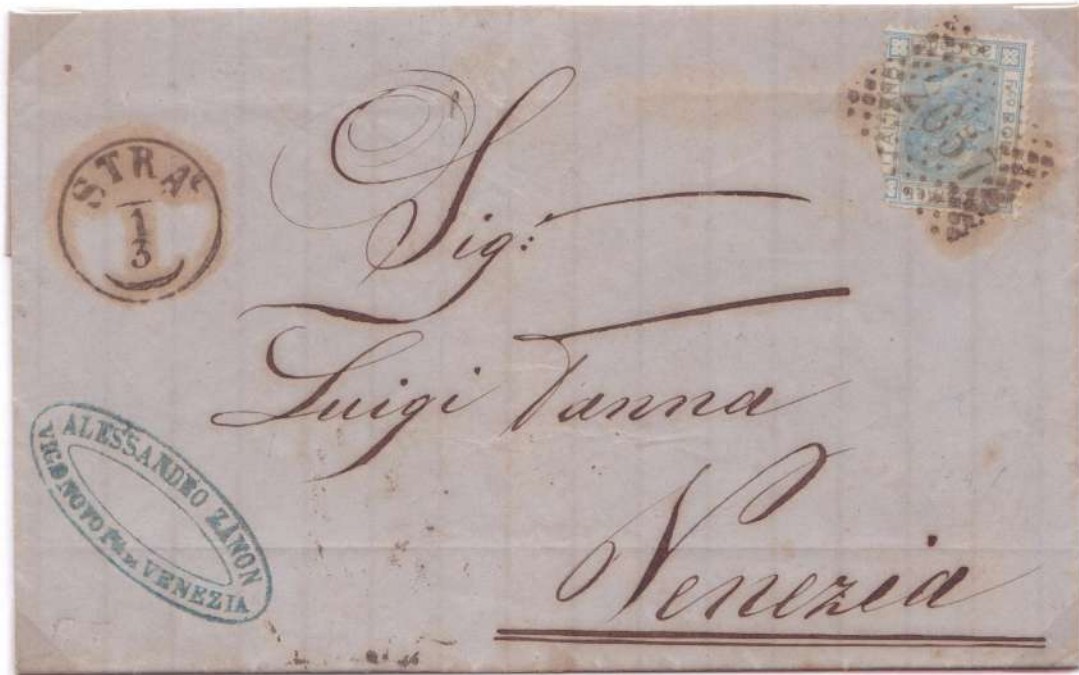 STRAᶜ
1
3
Sig:
Luigi Vanna
Venezia
ALESSANDRO ZANON
VIGONOVO PR. DI VENEZIA